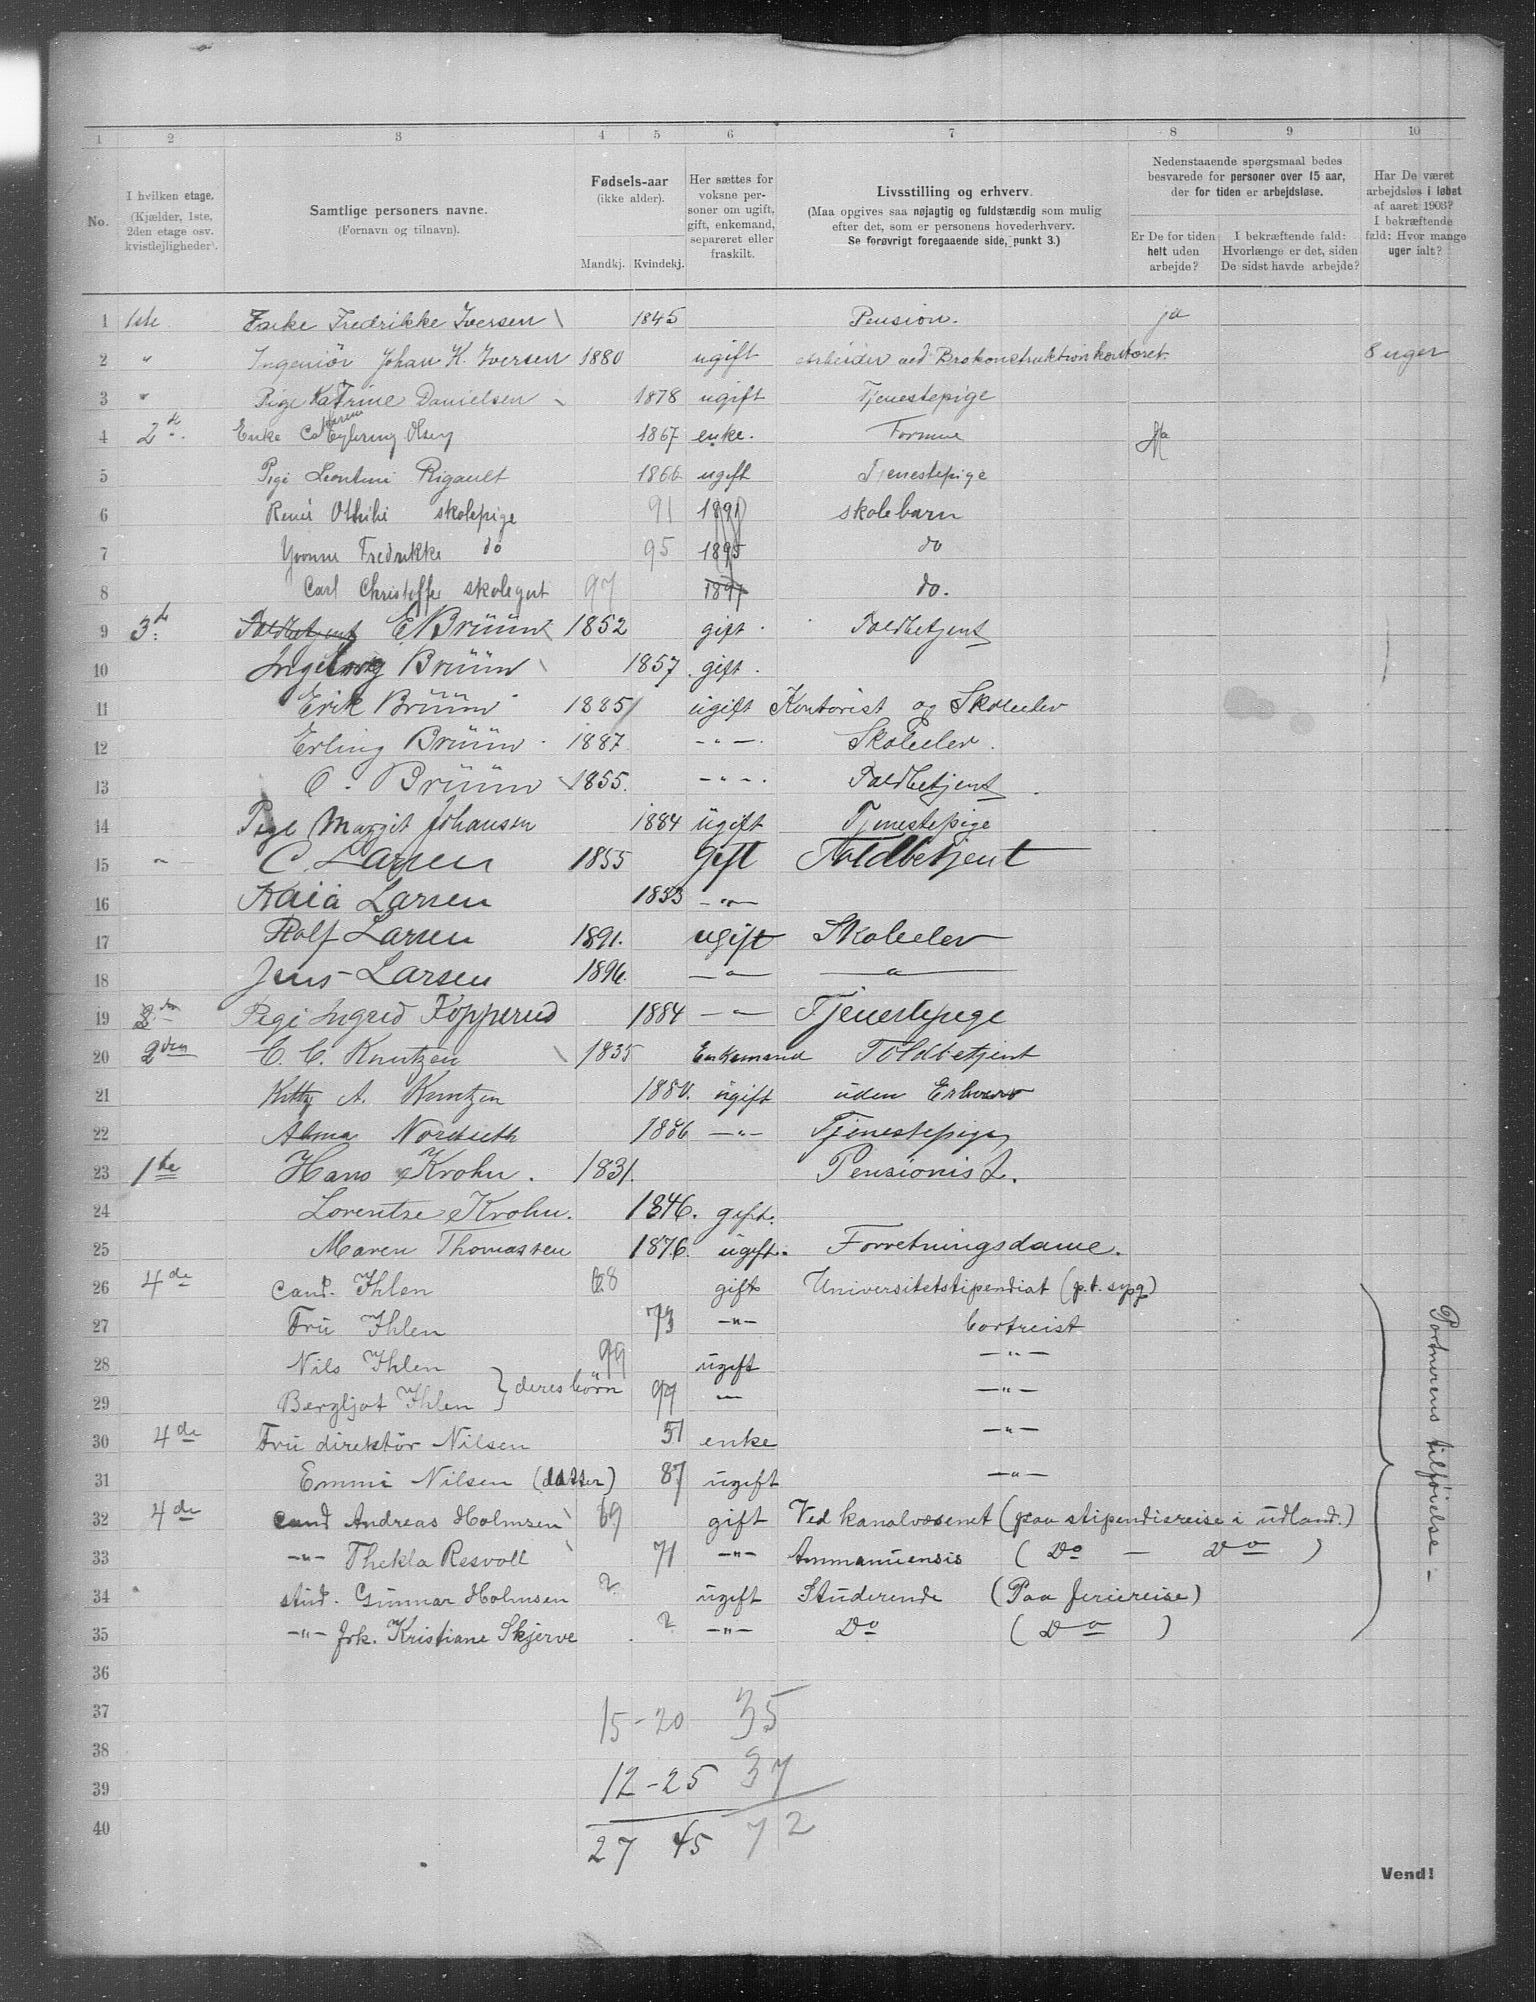 1 2 3 4 5 6 7 8 9 10
No.
I hvilken etage.
(Kjælder, 1ste,
2den etage osv.
kvistlejligheder).
Samtlige personers navne.
(Fornavn og tilnavn).
Fødsels-aar
(ikke alder).
Mandkj. Kvindekj.
Her sættes for
voksne per-
soner om ugift,
gift, enkemand,
separeret eller
fraskilt.
Livsstilling og erhverv.
(Maa opgives saa nøjagtig og fuldstændig som mulig
efter det, som er personens hovederhverv.
Se forøvrigt foregaaende side, punkt 3.)
Nedenstaaende spørgsmaal bedes
besvarede for personer over 15 aar,
der for tiden er arbejdsløse.
Er De for tiden
helt uden
arbejde?
I bekræftende fald:
Hvorlænge er det, siden
De sidst havde arbejde?
Har De været
arbejdsløs i løbet
af aaret 1903?
I bekræftende
fald: Hvor mange
uger ialt?
1 1ste Enke Fredrikke Iversen 1845 Pension. ja
2 " Ingeniör Johan K. Iversen 1880 ugift Arbeider ved Brokonstruktionkontoret. 8 uger
3 " Pige Katrine Danielsen 1878 ugift Tjenestepige
4 2d. Enke 1867 enke. Formue Ja
5 Pige Leontine Rigault 1866 ugift Tjenestepige
6 René skolepige 91 1891 skolebarn
7 Yvonne Fredrikke do 95 1895 do
8 Carl Christoffe skolegut 97 1897 do.
9 3. Toldbetjent E Brüün 1852 gift Toldbetjent
10 Ingeborg Brüün 1857. gift.
11 Erik Brüün 1885 ugift Kontorist og Skoleelev
12 Erling Brüün 1887 - " -. Skoleelev.
13 O. Brüün 1855. - " -. Toldbetjent.
14 Pige Margit Johansen 1884 ugift Tjenestepige
15 " C. Larsen 1855 gift Toldbetjent
16 Kaia Larsen 1853 - " -
17 Rolf Larsen 1891. ugift Skoleelev
18 Jens Larsen 1896. - " - - " -
19 Pige Ingrid Kopperud 1884 - " - Tjenestepige
20 2den C. C. Knutzen 1835 Enkemand Toldbetjent
21 Kitty A. Knutzen 1880. ugift uden Erhverv
22 Alma Nordseth 1886 - " - Tjenestepige
23 1ste Hans Krohn. 1831. Pensionist.
24 Lorentze Krohn. 1846. gift.
25 Maren Thomassen 1876. ugift. Forretningsdame.
26 4de Cand. Ihlen 68 gift Universitetstipendiat (p.t. syg)
27 Fru Ihlen 73 - " - bortreist
28 Nils Ihlen 99 ugift - " -
29 Bergljot Ihlen } deres börn 97 - - " -
30 4de Fru direktör Nilsen 51 enke - " -
31 Emmi Nilsen (datter) 87 ugift - " -
32 4de cand Andreas Holmsen 69 gift Ved kanalvæsenet (paa stipendiereise i udland.)
33 - " - Thekla Resvoll 71 - " - Ammanuensis (Do - Do)
34 stud. Gunnar Holmsen ? ugift Studerende (Paa feriereise)
35 - " - frk. Kristiane Skjerve ? - " - Do (Do)
Portnerens tilføielse -
36
37 15-20 35
38
39 12-25 37
40 27 45 72
Vend!